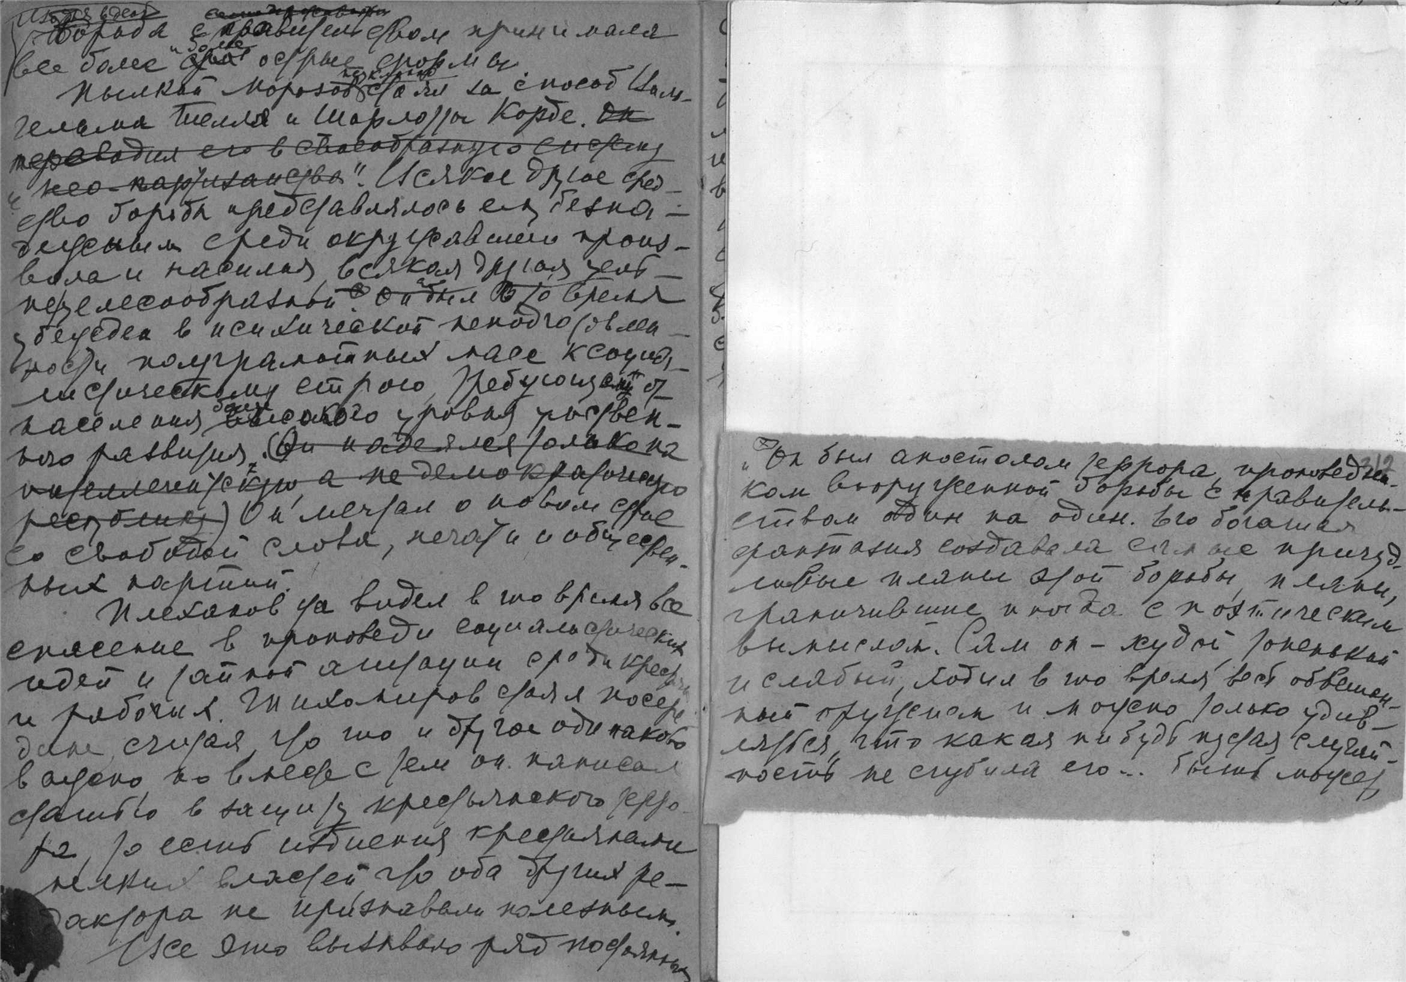 Борьба с правительством принимала
все более и более острые формы
Пылкий Морозов стоял за способ Виль-
гельма Телля и Шарлотты Корде. Он
переводил его в своеобразную систему
"нео-партизанства". Всякое другое сред-
ство борьбы представлялось ему безна-
дежным среди окружавшего произ-
вола и насилия, всякая другая цель -
нецелесообразной. Он был в то время
убежден в психической неподготовлен-
ности полуграмотных масс к социа-
листическому строю, требующему от
населения более высокого уровня умствен-
ного развития. (Он надеялся только на
интеллигентскую, а не демократическую
республику) Он мечтал о новом строе
со свободой слова, печати и обществен-
ных партий.
Плеханов видел в то время все
спасение в проповеди социалистических
идей и тайной агитации среди крестьян
и рабочих. Тихомиров стоял посере-
дине, считая, что то и другое одинаково
важно но вместе с тем он написал
статью в защиту крестьянского терро-
ра, то есть избиения крестьянами
мелких властей что оба другие ре-
дактора не признавали полезным.
Все это вызывало ряд постоянных
312
"Он был апостолом террора, проповедни-
ком вооруженной борьбы с правитель-
ством один на один. Его богатая
фантазия создавала самые причуд-
ливые планы этой борьбы, планы,
граничившие иногда с поэтическим
вымыслом. Сам он - худой, тоненький
и слабый, ходил в то время весь обвешан-
ный оружием и можно только удив-
ляться, что какая нибудь пустая случай-
ность не сгубила его... Быть может